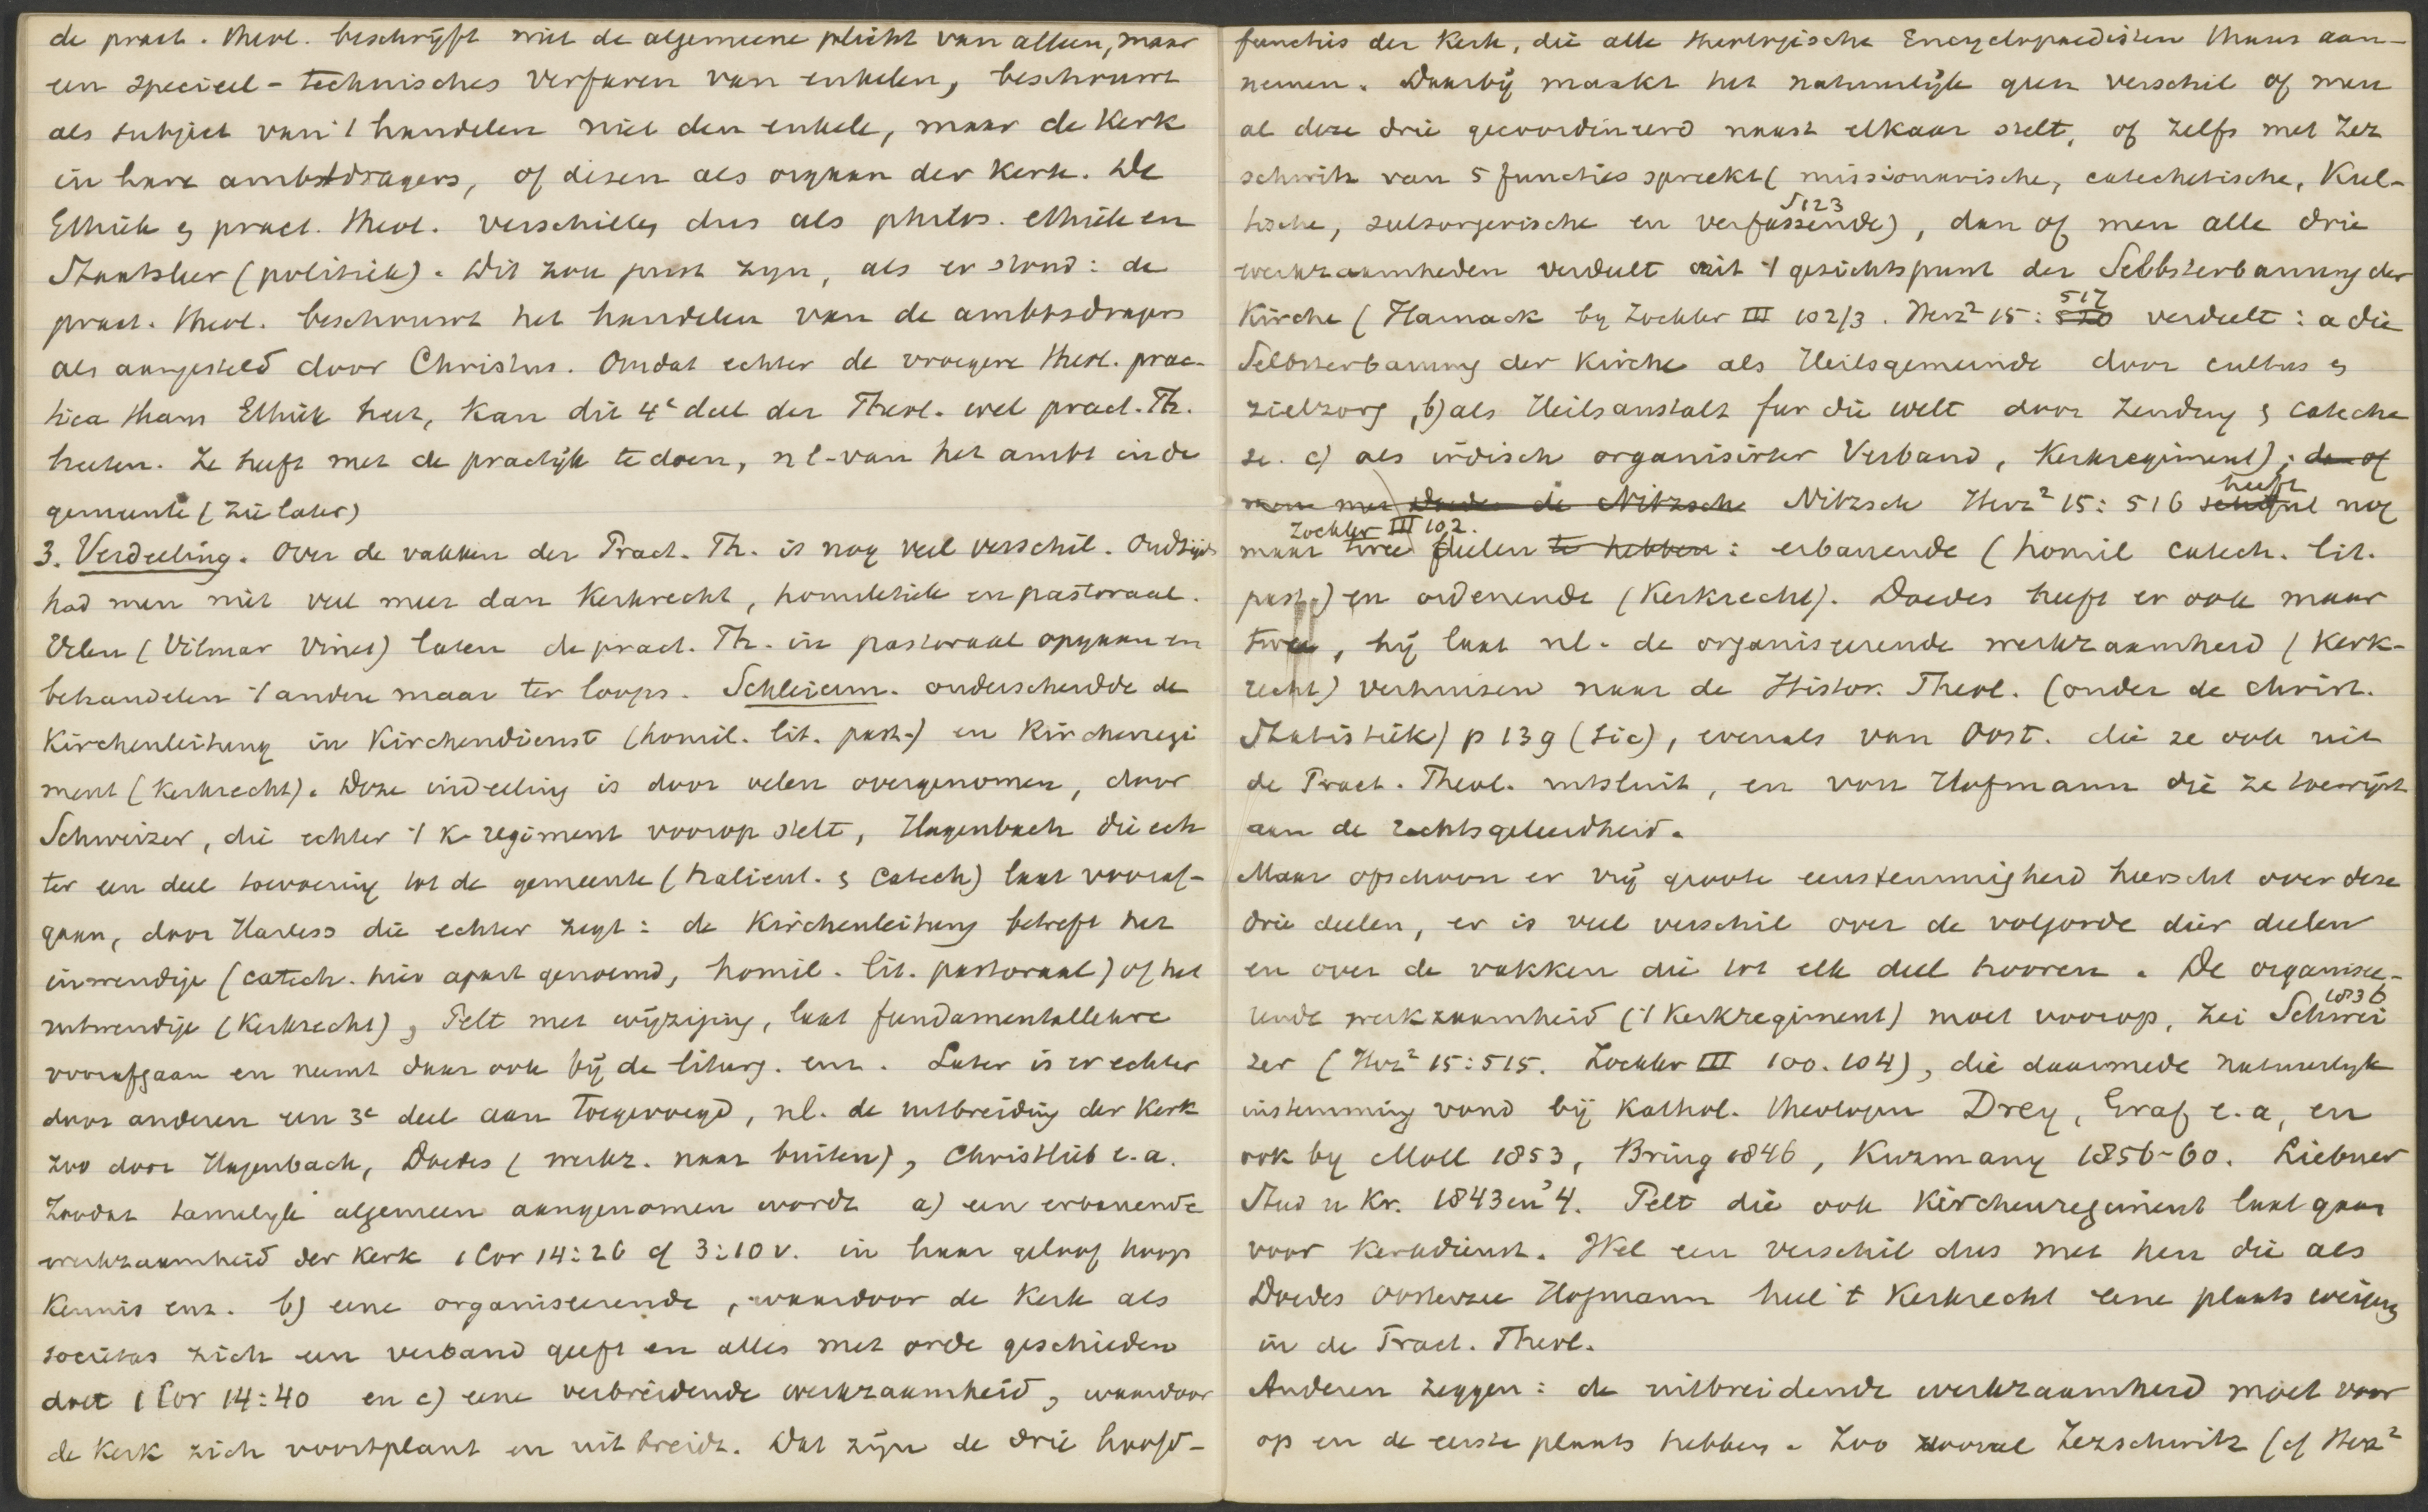 de pract. theol. beschrijft niet de algemeene plicht van allen, maar
een speciëel-technisches Verfaren van enkelen, beschouwt
als subject van 't handelen niet den enkele, maar de Kerk
in hare ambtdragers, of dezen als orgaan der Kerk. De
Ethiek en pract. theol. verschillen dus als philos. ethiek en
Staatsleer (politiek). Dit zou juist zijn, als er stond: de
pract. theol. beschouwt het handelen van de ambtsdragers
als aangesteld door Christus. Omdat echter de vroegere theol. prac-
tica thans Ethiek heet, kan dit 4e deel der Theol. wel pract. Th.
heeten. Ze heeft met de practijk te doen, nl. van het ambt in de
gemeente (zie later)
3. Verdeeling. Over de vakken der Pract. Th. is nog veel verschil. Oudtijds
had men niet veel meer dan Kerkrecht, homiletiek en pastoraal.
Velen (Vilmar Vinet) laten de pract. Th. in pastoraal opgaan en
behandelen 't andere maar ter loops. Schleierm. onderscheidde de
Kirchenleitung in Kirchendienst (homil. lit. past.) en Kirchenregi
ment (Kerkrecht). Deze indeeling is door velen overgenomen, door
Schweizer, die echter 't K-regiment voorop stelt, Hagenbach die ech
ter een deel toevoering tot de gemeente (halieut. en catech) laat vooraf-
gaan, door Harless die echter zegt: de Kirchenleitung betreft het
inwendige (catech. hier apart genoemd, homil. lit. pastoraal) of het
uitwendige (Kerkrecht), Pelt met wijziging, laat fundamentallehre
voorafgaan en neemt daar ook bij de liturg. enz. Later is er echter
door anderen een 3e deel aan toegevoegd, nl. de uitbreiding der Kerk
zoo door Hagenbach, Doedes (werkz. naar buiten), Christlieb e.a.
Zoodat tamelijk algemeen aangenomen wordt a) een erbauende
werkzaamheid der Kerk 1 Cor 14:26 cf 3:10v. in haar geloof hoop
Kennis enz. b) eene organiseerende, waardoor de Kerk als
societas zich een verband geeft en alles met orde geschieden
doet 1 Cor 14:40 en c) eene verbreidende werkzaamheid, waardoor
de Kerk zich voortplant en uitbreidt. Dat zijn de drie hoofd-
functies der Kerk, die alle theologische Encyclopaedisten thans aan-
nemen. Daarbij maakt het natuurlijk geen verschil of men
al deze drie gecoordineerd naast elkaar stelt, of zelfs met Zez
schwitz van 5 functies spreekt (missionarische, catechetische, Kul-
tische, seelsorgerische en verfassende), dan of men alle drie
§123
werkzaamheden verdeelt uit 't gezichtspunt der Selbsterbauung der
Kirche (Harnack by Zockler III 102/3. Herz² 15: 520 517 verdeelt: a die
Selbsterbauung der Kirche als Heilsgemeinde door cultus en
zielzorg, b) als Heilsanstalt fur die welt door Zending en cateche
se. c) als irdisch organisirter Verband, Kerkregiment); dan of
men met Doedes de Nitzsch Nitzsch Herz² 15: 516 heeft nog
Zockler III 102.
maar twee deelen te hebben: erbauende (homil catech. lit.
past.) en ordenende (Kerkrecht). Doedes heeft er ook maar
twee, hij laat nl. de organiseerende werkzaamheid (Kerk-
recht) verhuizen naar de Histor. Theol. (onder de christ.
Statistiek) p 139 (sic), evenals van Oost. die ze ook uit
de Pract. Theol. uitsluit, en von Hofmann die ze toewijst
aan de rechtsgeleerdheid.
Maar ofschoon er vrij groote eenstemmigheid heerscht over deze
drie deelen, er is veel verschil over de volgorde dier deelen
en over de vakken die tot elk deel hooren. De organisee-
rende werkzaamheid ('t Kerkregiment) moet voorop, zei Schwei
1836
zer (Herz² 15:515. Zockler III 100. 104), die daarmede natuurlijk
instemming vond bij Kathol. theologen Drey, Graf e.a, en
ook by Moll 1853, Bring 1846, Kuzmany 1856-60. Liebner
Stud u Kr. 1843 en '4. Pelt die ook Kirchenregiment laat gaan
voor Kerkdienst. Wel een verschil dus met hen die als
Doedes Oosterzee Hofmann heel 't Kerkrecht eene plaats weigeren
in de Pract. Theol.
Anderen zeggen: de uitbreidende werkzaamheid moet voor
op en de eerste plaats hebben. Zoo vooral Zezschwitz (cf Herz²